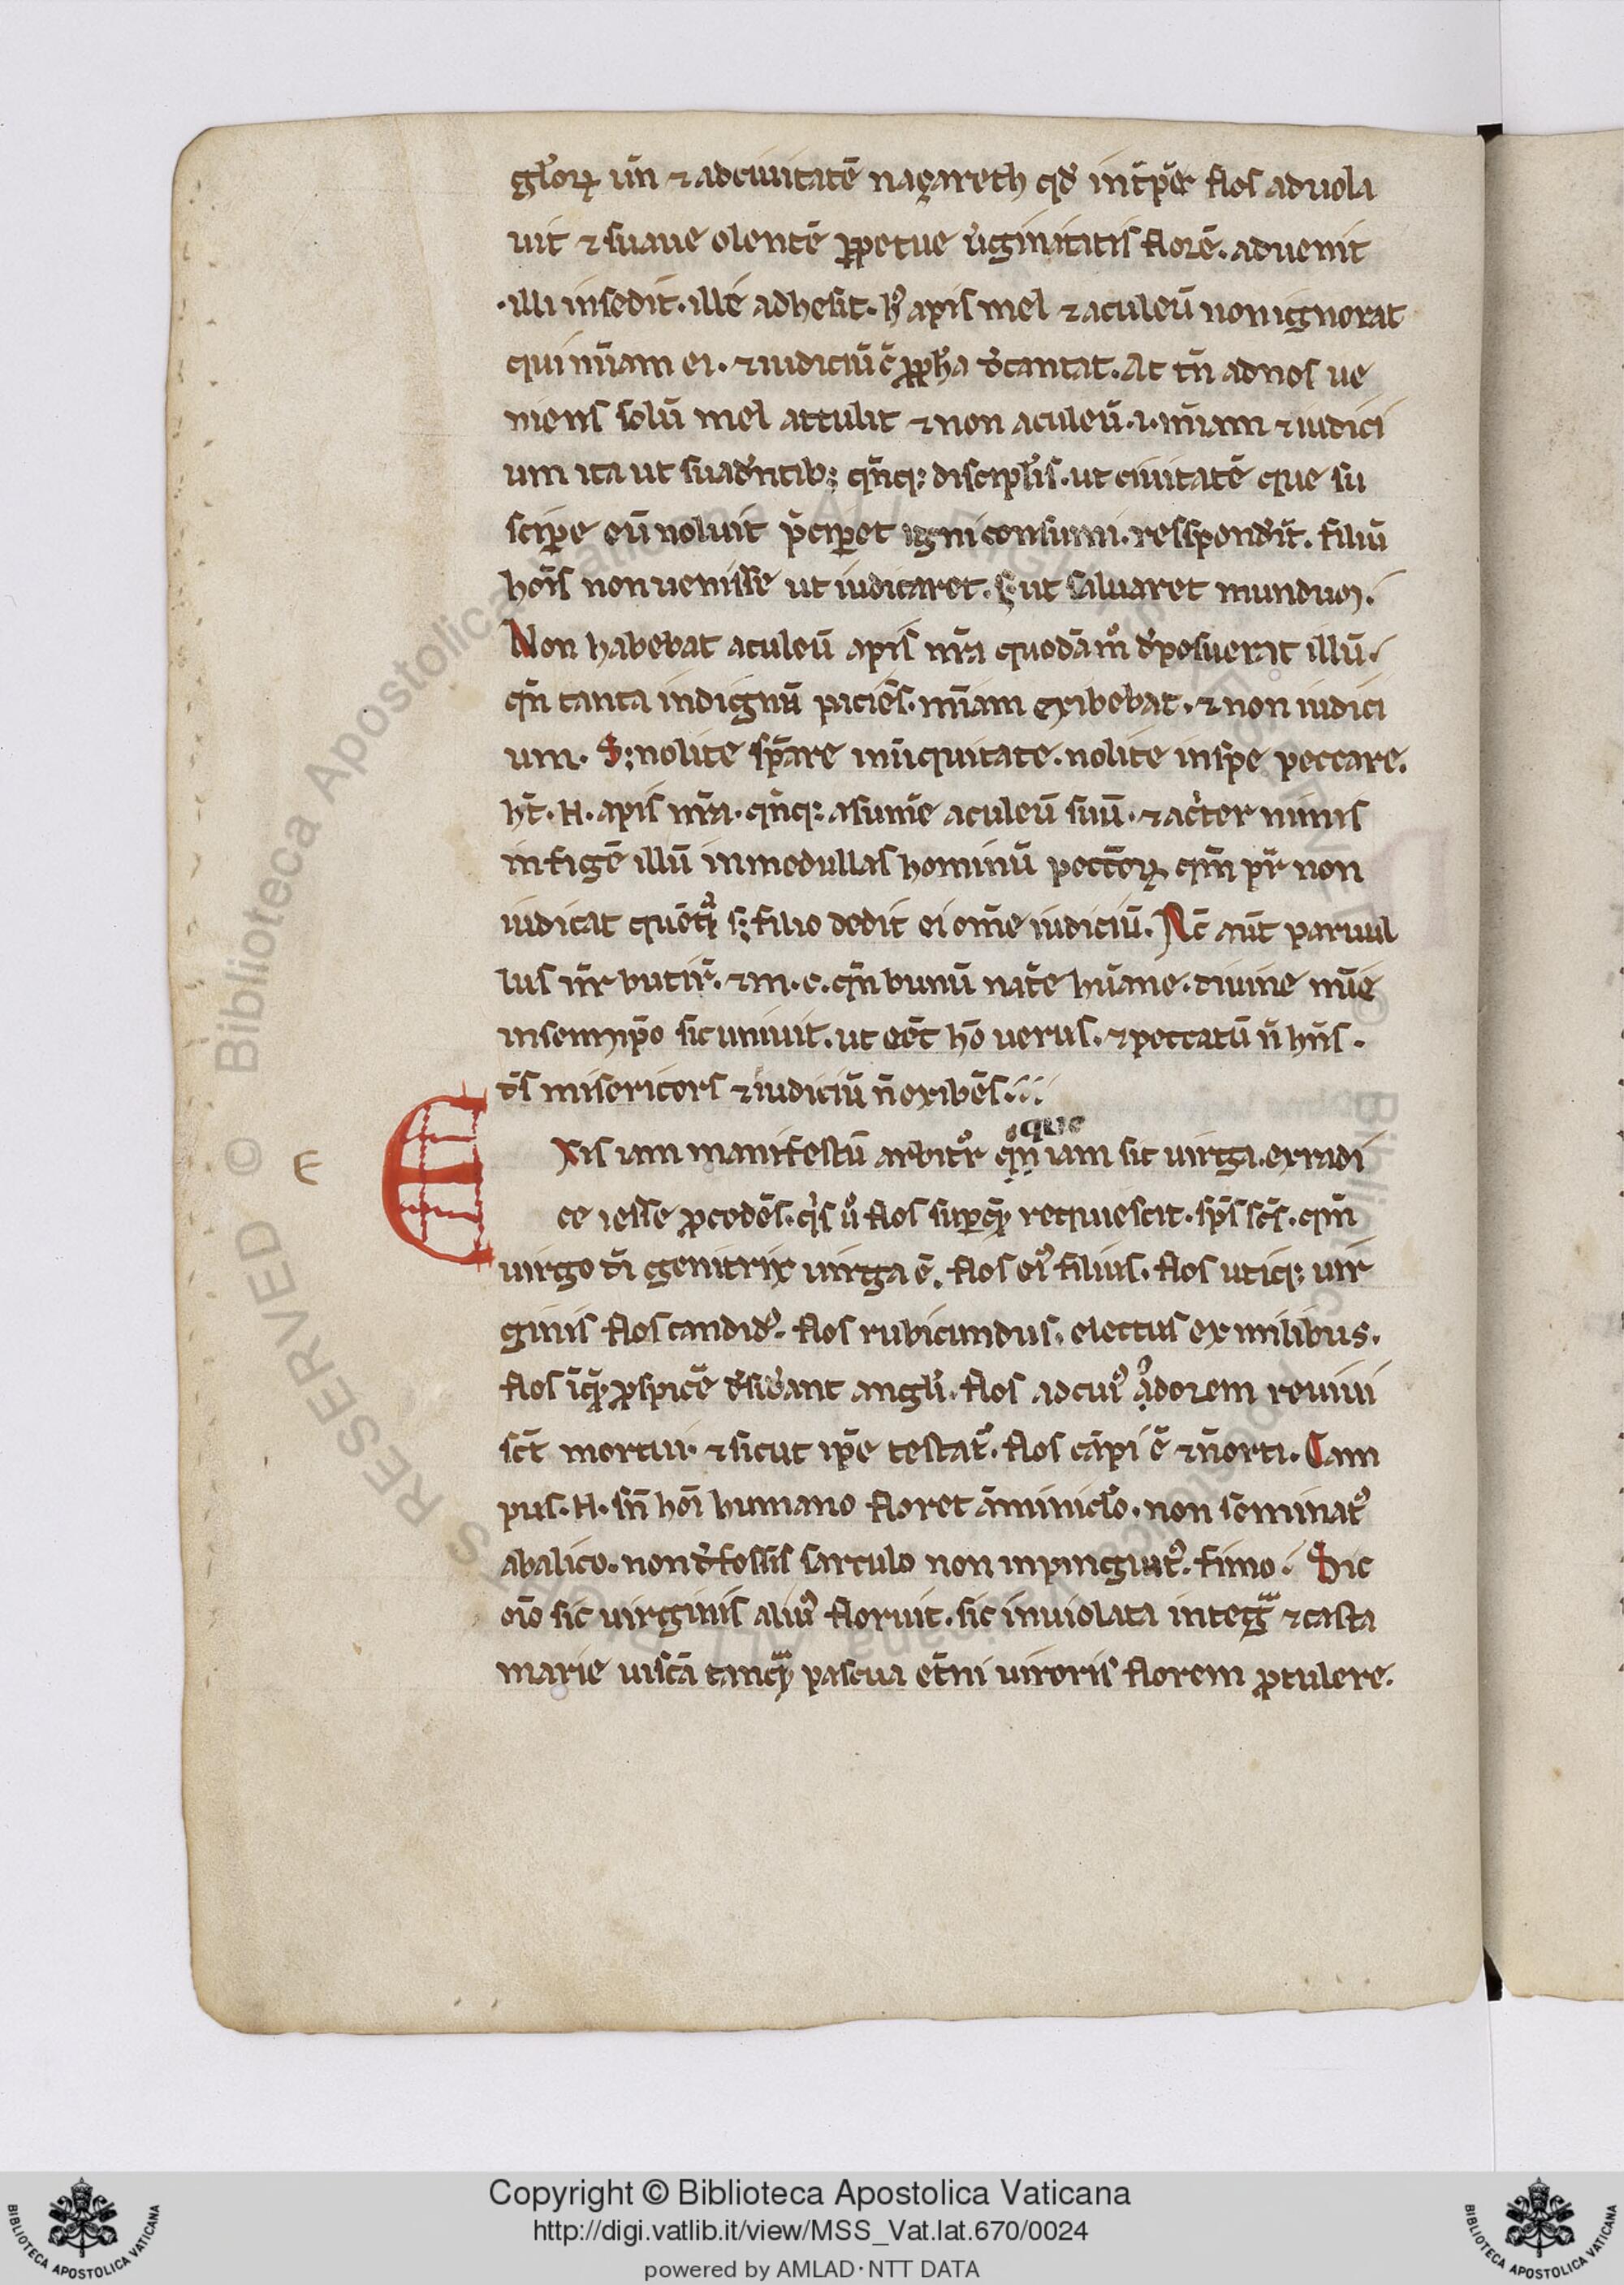 gl'oꝝ un̄ ⁊ ad ciuitatē naçareth qd' int̄p̄t flos aduola
uit ⁊ suaue olentē ꝑpetue u'ginitatis florē. aduenit
.illi insedit. illē adhesit. h' apis mel ⁊ aculeū non ignorat
qui mīam ei. ⁊ iudiciū c̄ ꝓph'a d'cantat. At tn̄ ad nos ue
niens solū mel attulit ⁊ non aculeū .i. mīam ⁊ iudici
um ita ut suad'ntib; qn̄q; discipl'is. ut ciuitatē que su
scipe eū noluit p̄cipet igni consumi. resspond'it̄. filiū
hoīs non uenisse ut iudicaret. s; ut saluaret mundum.
Non habebat aculeū apis nr̄a quodām° d'posuerat illū.
qn̄ tanta indignū paciēs. mīam exibebat. ⁊ non iudici
um. S; nolite sꝑare iniquitate. nolite in spe peccare.
ht̄. N. apis nr̄a. qn̄q; asum̄e aculeū suū. ⁊ ac'ter nimis
infigē illū in medullas hominū pecc̄oꝝ qm̄ pr̄ non
iudicat quēq̄ s; filio dedit ei om̄e iudiciū. Ac̄ aūt paruul
lus nr̄ butir̄. ⁊ m. c. qn̄ bunū nat̄e hūane. diuine mīe
in semꝫip̄o sic univit. ut eēt hō uerus. ⁊ peccatū n̄ hn̄s.
d̄s misericors ⁊ iudiciū n̄ exibēs.
E
que
EXis iam manifestū arbitr° qn̄ iam sit uirga. ex radi
ce iesse ꝓcedēs. q's u° flos suꝑ quē requiescit. sp̄s sc̄s. qm̄
uirgo di genitrix uirga ē. flos ei' filius. flos utiq; uir
ginis flos candid'. flos rubicundus. electus ex milibus.
flos ī quē ꝓspicē d'sid'ant angl'i. flos ad cui' odorem reuiui
sct̄ mortui. ⁊ sicut ip̄e testat̄. flos cāpi ē ⁊ n̄ orti. Cam
pus. N. sn̄ hoī humano floret āminicl'o. non seminat'
ab alico. non d'fossis sarculo non inpinguat'. fimo. Sic
oīo sic uirginis aluu' floruit. sic inuiolata integ̃ ⁊ casta
marie uiscā tanq̄ pascua et̄ni uiroris florem ꝓtulere.
Copyright © Biblioteca Apostolica Vaticana
http://digi.vatlib.it/view/MSS_Vat.lat.670/0024
powered by AMLAD·NTT DATA
BIBLIOTECA APOSTOLICA VATICANA
BIBLIOTECA APOSTOLICA VATICANA